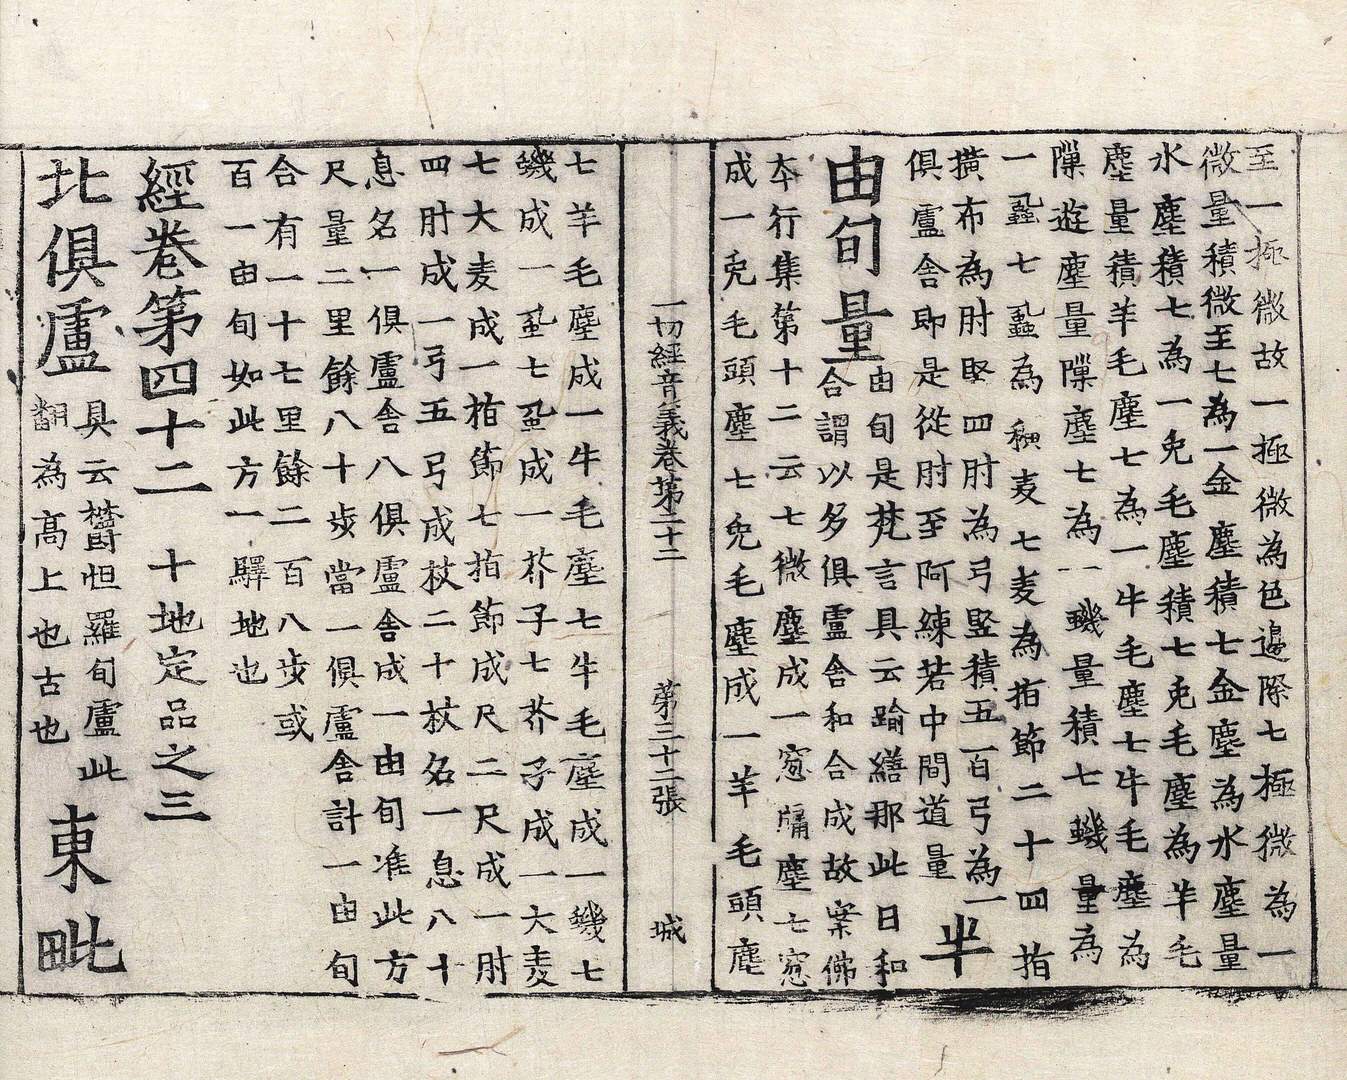 至一極微故一極微為色邊際七極微為一
微量積微至七為一金塵積七金塵為水塵量
水塵積七為一免毛塵積七免毛塵為羊毛
塵量積羊毛塵七為一牛毛塵七牛毛塵為
隟遊塵量隟塵七為一蟣量積七蟣量為
一蝨七蝨為穬麦七麦為指節二十四指
横布為肘竪四肘為弓竪積五百弓為一
俱盧舍即是從肘至阿練若中間道量 半
由旬量 由旬是梵言具云踰繕那此日和
合謂以多俱盧舍和合成故案佛
本行集第十二云七微塵成一窓牖塵七窓
成一免毛頭塵七免毛塵成一羊毛頭塵
一切經音義卷第二十二 第三十二張 城
七羊毛塵成一牛毛塵七牛毛塵成一蟣七
蟣成一虱七虱成一芥子七芥子成一大麦
七大麦成一指節七指節成尺二尺成一肘
四肘成一弓五弓成杖二十杖名一息八十
息名一俱盧舍八俱盧舍成一由旬准此方
尺量二里餘八十歩當一俱盧舍計一由旬
合有一十七里餘二百八歩或
百一由旬如此方一驛地也
經卷第四十二 十地定品之三
北俱盧 具云欝怛羅句盧此
翻為高上也古也 東毗